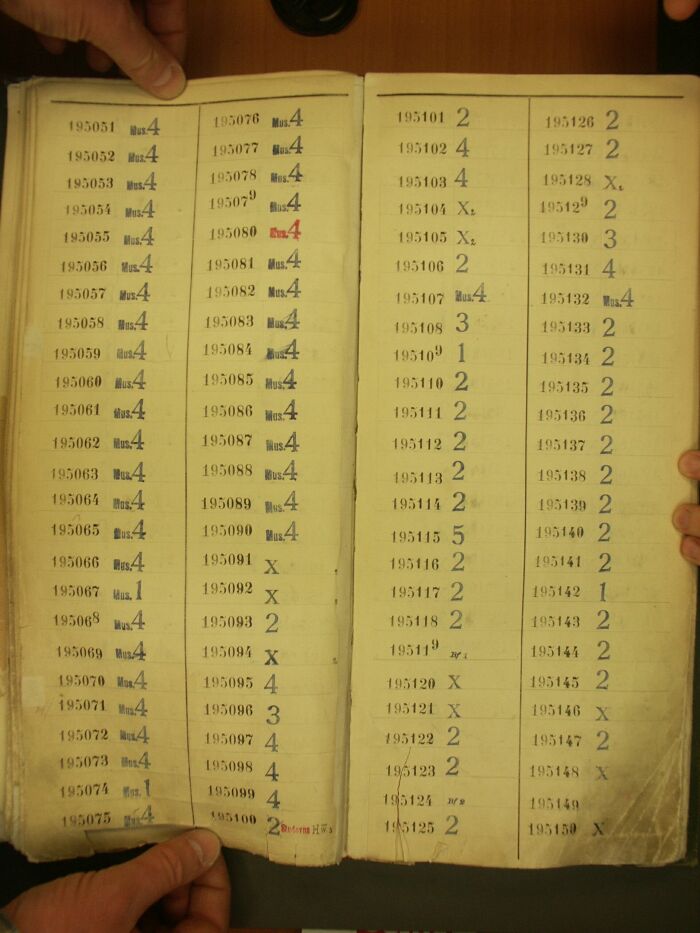 195051 Mus.4
195052 Mus.4
195053 Mus.4
195054 Mus.4
195055 Mus.4
195056 Mus.4
195057 Mus.4
195058 Mus.4
195059 Mus.4
195060 Mus.4
195061 Mus.4
195062 Mus.4
195063 Mus.4
195064 Mus.4
195065 Mus.4
195066 Mus.4
195067 Mus.1
195068 Mus.4
195069 Mus.4
195070 Mus.4
195071 Mus.4
195072 Mus.4
195073 Mus.4
195074 Mus.1
195075 Mus.4
195076 Mus.4
195077 Mus.4
195078 Mus.4
195079 Mus.4
195080 Mus.4
195081 Mus.4
195082 Mus.4
195083 Mus.4
195084 Mus.4
195085 Mus.4
195086 Mus.4
195087 Mus.4
195088 Mus.4
195089 Mus.4
195090 Mus.4
195091 X
195092 X
195093 2
195094 X
195095 4
195096 3
195097 4
195098 4
195099 4
195100 2
195101 2
195102 4
195103 4
195104 X₂
195105 X₂
195106 2
195107 Mus.4
195108 3
195109 1
195110 2
195111 2
195112 2
195113 2
195114 2
195115 5
195116 2
195117 2
195118 2
195119
195120 X
195121 X
195122 2
195123 2
195124
195125 2
195126 2
195127 2
195128 X
195129 2
195130 3
195131 4
195132 Mus.4
195133 2
195134 2
195135 2
195136 2
195137 2
195138 2
195139 2
195140 2
195141 2
195142 1
195143 2
195144 2
195145 2
195146 X
195147 2
195148 X
195149
195150 X